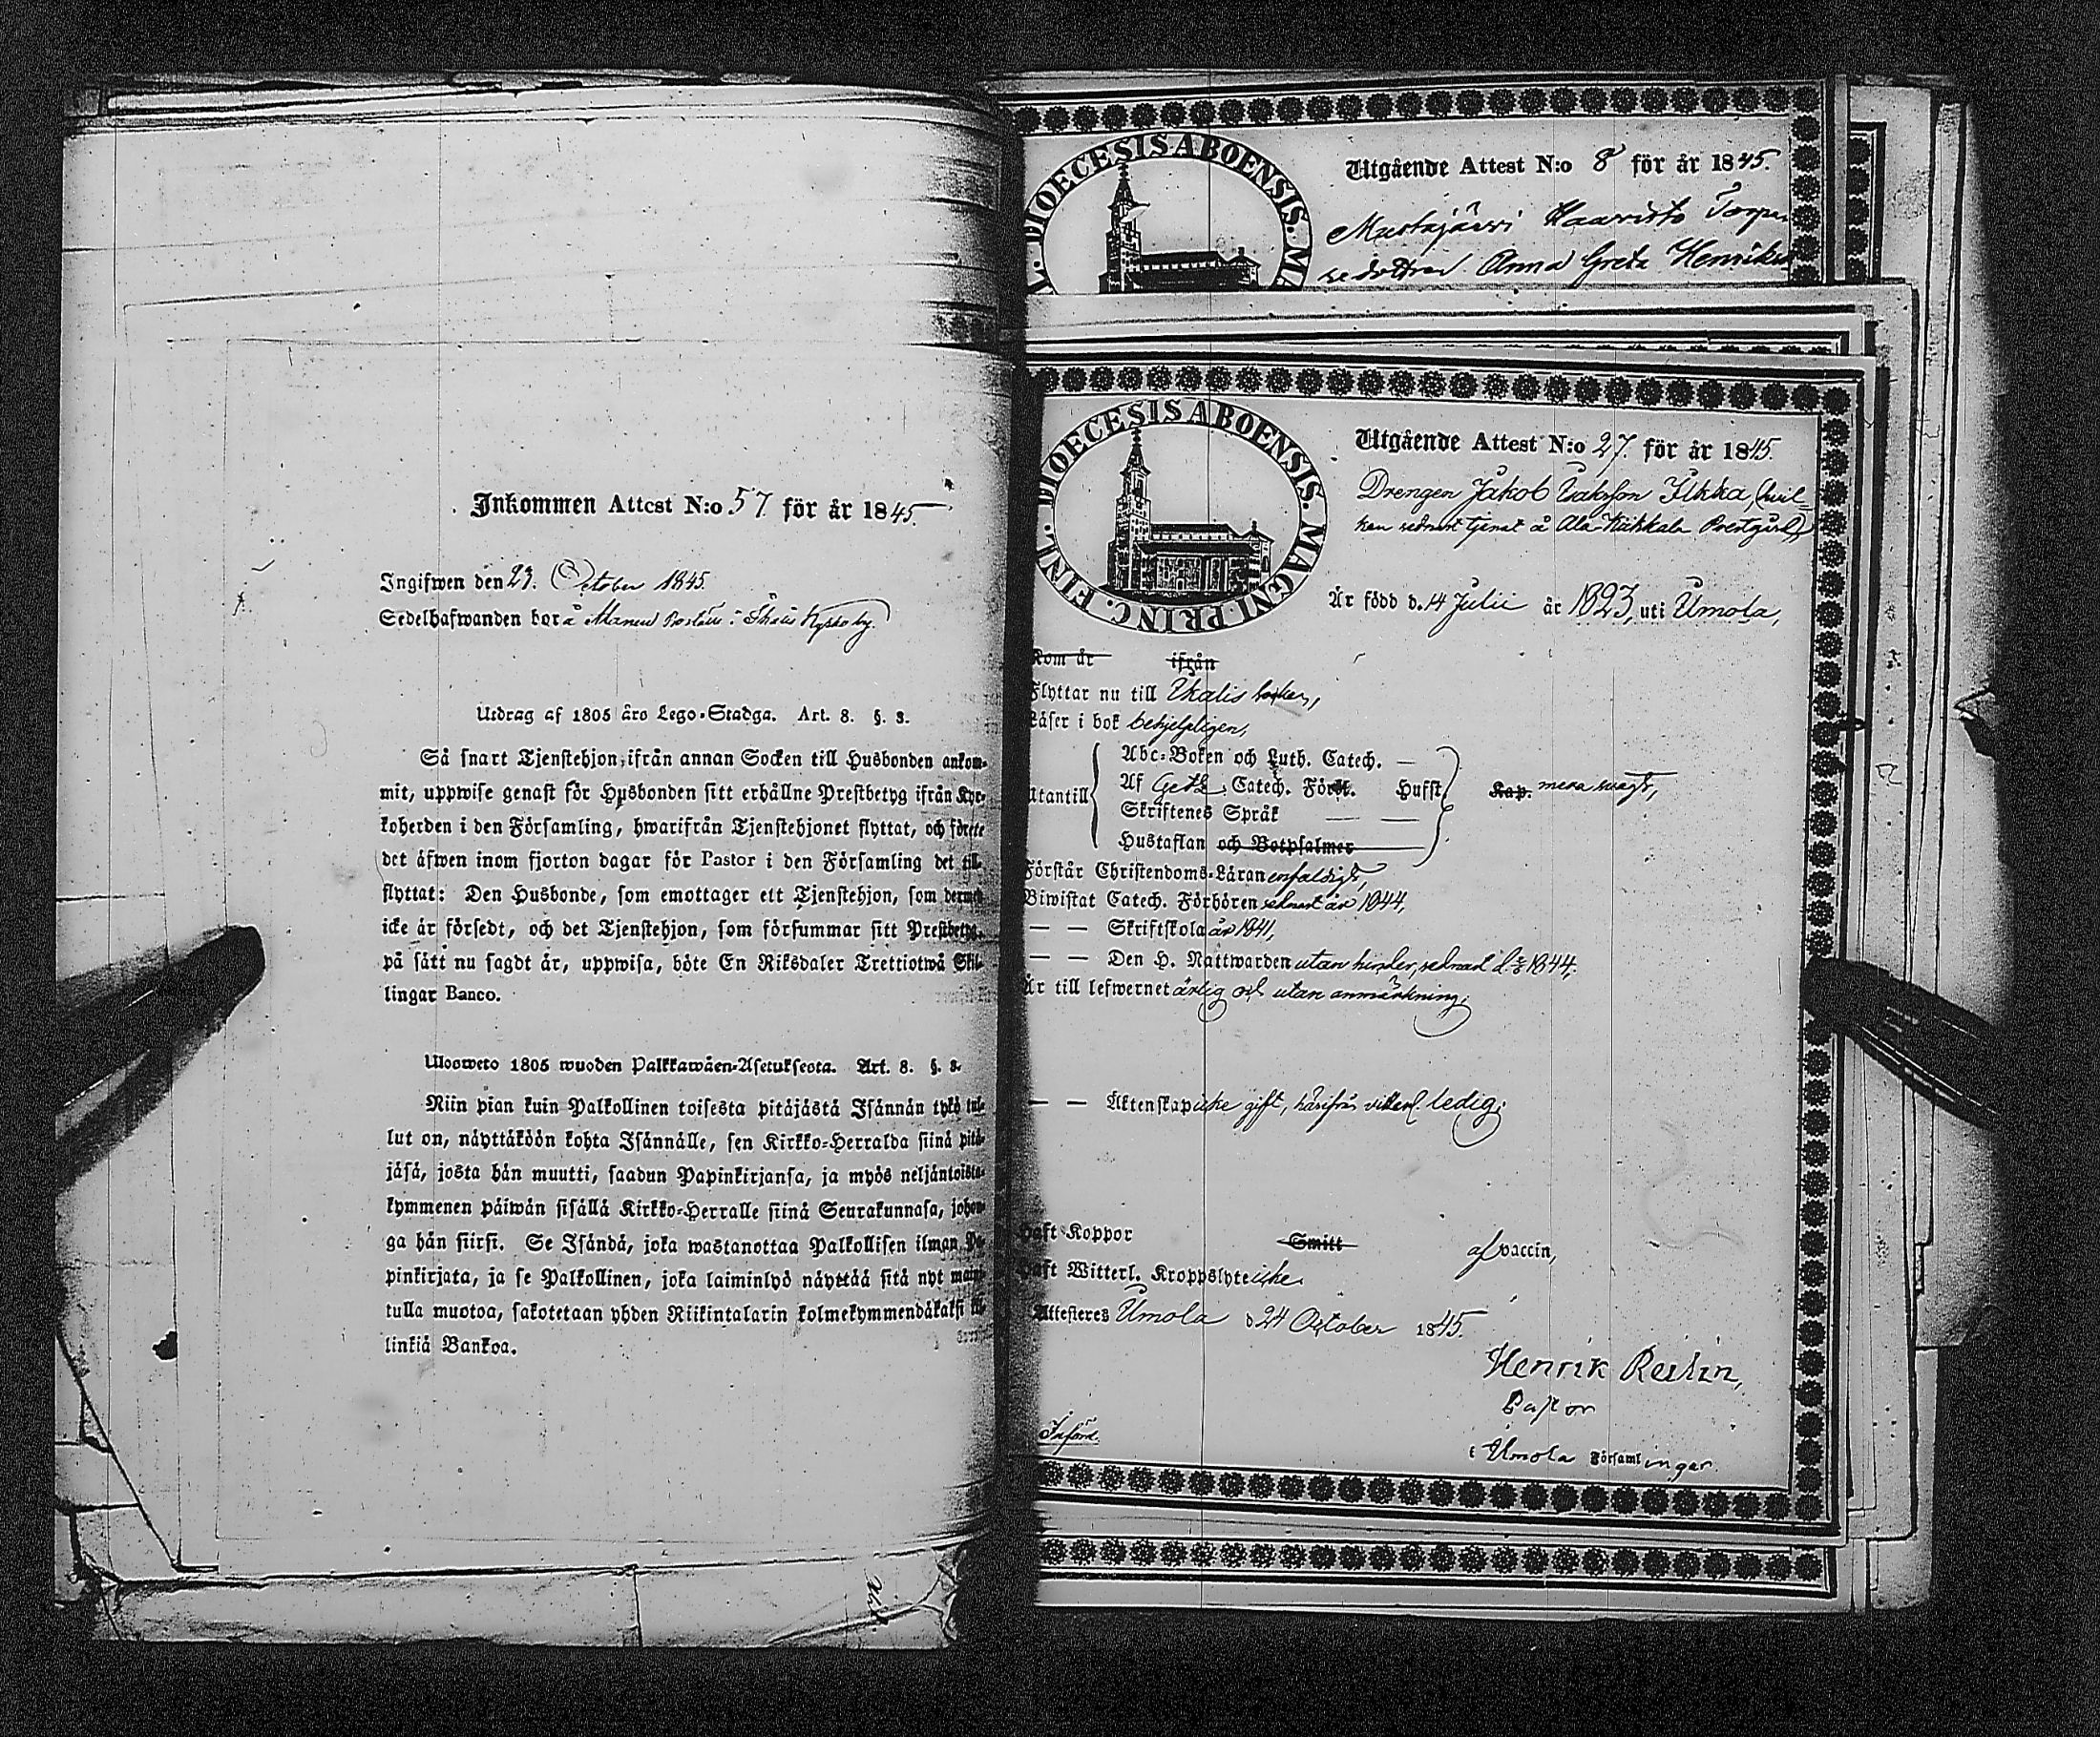 Inkommen Attest N:o 57 för år 1845.
Ingifwen den 23. October 1845.
Sedelhafwanden bor å Kyrko by.
Utdrag af 1805 åro Lego-Stadga. Art. 8. §. 8.
Så snart Tjenstehjon, ifrån annan Socken till Husbonden ankom-
mit, uppwise genast för Husbonden sitt erhållne Prestbetyg ifrån Kyr-
koherden i den Församling, hwarifrån Tjenstehjonet flyttat, och förete
det äfwen inom fjorton dagar för Pastor i den Församling det till-
flyttat: Den Husbonde, som emottager ett Tjenstehjon, som dermed
icke är försedt, och det Tjenstehjon, som försummar sitt Prestbetyg,
på sätt nu sagdt är, uppwisa, böte En Riksdaler Trettiotwå Skil-
lingar Banco.
Ulosweto 1805 wuoden Palkkawäen-Asetuksesta. Art. 8. §. 8.
Niin pian kuin Palkollinen toisesta pitäjästä Isännän tykö tul-
lut on, näyttäköön kohta Isännälle, sen Kirkko-Herralda siinä pitä-
jäsä, josta hän muutti, saadun Papinkirjansa, ja myös neljäntoista-
kymmenen päiwän sisällä Kirkko-Herralle siinä Seurakunnasa, johon-
ga hän siirsi. Se Isändä, joka wastanottaa Palkollisen ilman Pa-
pinkirjata, ja se Palkollinen, joka laiminlyö näyttää sitä nyt mainit-
tulla muotoa, sakotetaan yhden Riikintalarin kolmekymmendäkaksi kil-
linkiä Bankoa.
DIOECESIS ABOENSIS. MA
Utgående Attest N:o 8 för år 1845.
Mustajärvi Haavisto Torpa
Anna Greta Henriks
DIOECESIS ABOENSIS. MAGNI PRINC. FINL.
Utgående Attest N:o 27. för år 1845.
Drengen Jakob Isaksson Ilkka, (hvil-
ken sednast tjenat å Ala-Kiikkala Prestgård)
Är född d. 14 Julii år 1823, uti Urnola,
Kom år ifrån
Flyttar nu till Ikalis socken,
Läser i bok behjelpligen,
Utantill
Abc-Boken och Luth. Catech. —
Af Catech. Förkl. Hufst. Kap. mera svagt,
Skriftenes Språk — —
Hustaflan och Botpsalmer
Förstår Christendoms-Läran enfaldigt,
Biwistat Catech. Förhören sednast år 1844,
— — Skriftskola år 1841,
— — Den H. Nattwarden utan hinder, sednast d. 1844;
Är till lefwernet ärlig och utan anmärkning;
— — Äktenskap icke gift, härifrån ledig;
Haft Koppor Smitt af vaccin,
Haft Witterl. Kroppslyte icke.
Attesteres Urnola d 24 October 1845.
Henrik
Pastor
i Urnola Församlingar.
Införd.